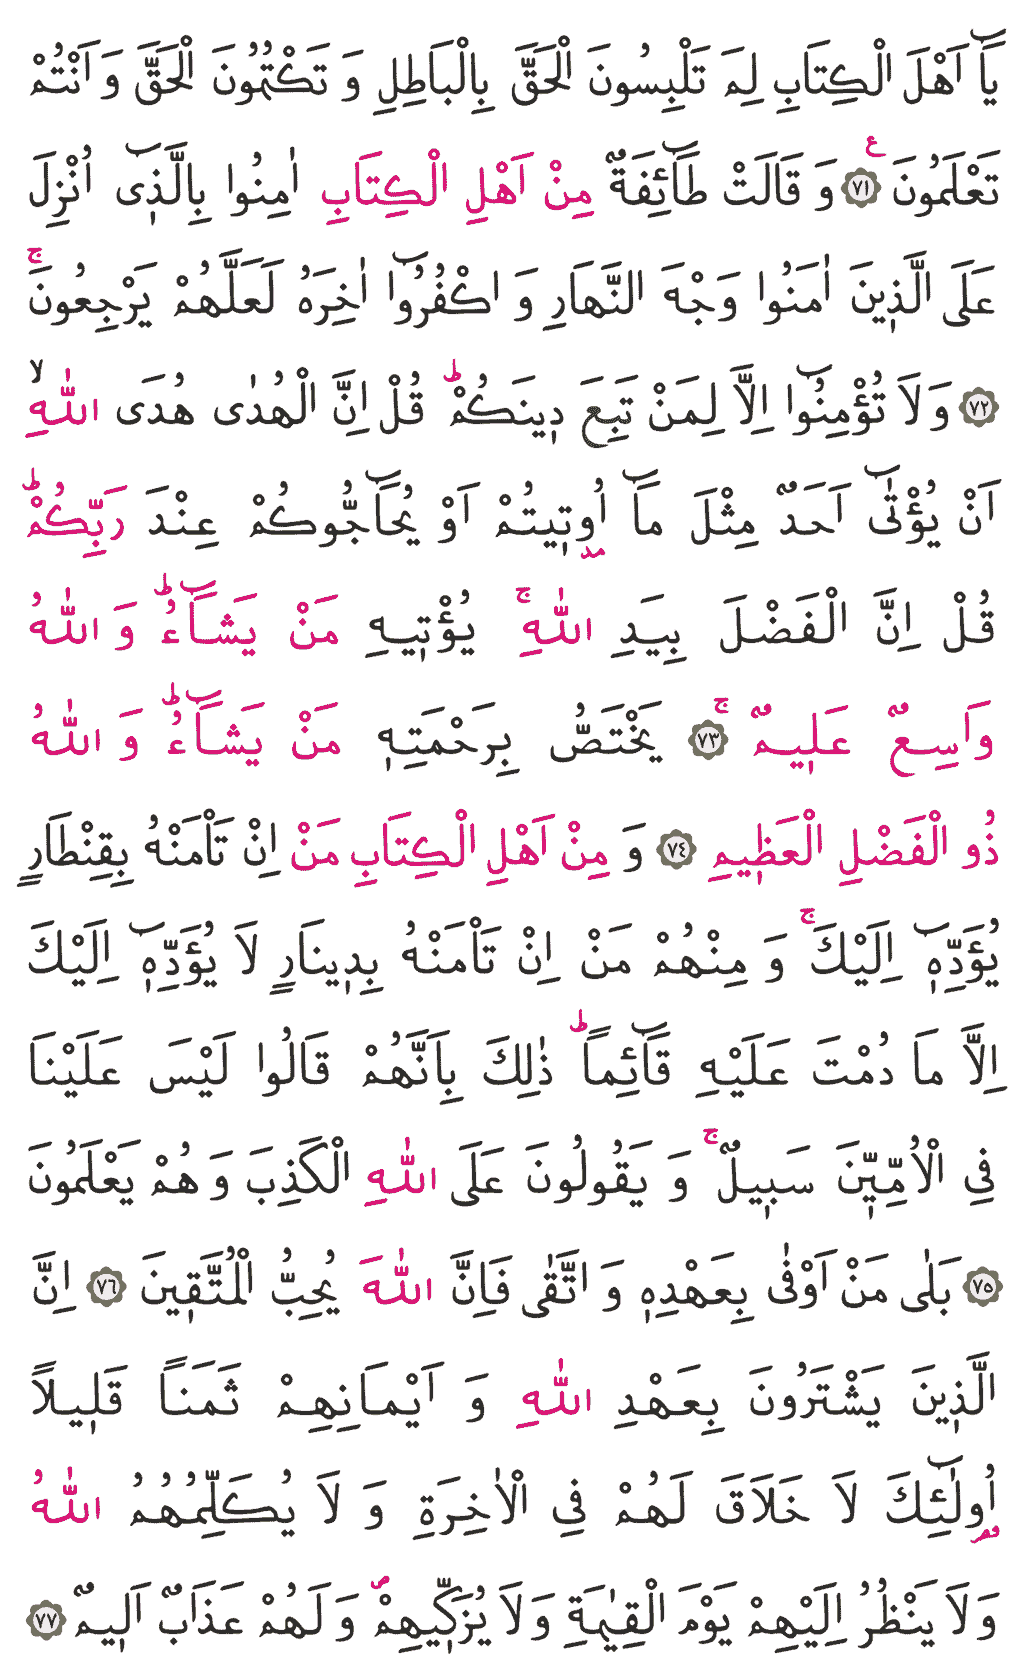 يَٓا اَهْلَ الْكِتَابِ لِمَ تَلْبِسُونَ الْحَقَّ بِالْبَاطِلِ وَ تَكْتُمُونَ الْحَقَّ وَ اَنْتُمْ
تَعْلَمُونَ ع ﴿٧١﴾ وَ قَالَتْ طَٓائِفَةٌ مِنْ اَهْلِ الْكِتَابِ اٰمِنُوا بِالَّذ۪ٓى اُنْزِلَ
عَلَى الَّذ۪ينَ اٰمَنُوا وَجْهَ النَّهَارِ وَ اكْفُرُٓوا اٰخِرَهُ لَعَلَّهُمْ يَرْجِعُونَۚ
﴿٧٢﴾ وَ لَا تُؤْمِنُٓوا اِلَّا لِمَنْ تَبِعَ د۪ينَكُمْۜ قُلْ اِنَّ الْهُدٰى هُدَى اللّٰهِۙ
اَنْ يُؤْتٰٓى اَحَدٌ مِثْلَ مَٓا اُو۫ت۪يتُمْ اَوْ يُحَٓاجُّوكُمْ عِنْدَ رَبِّكُمْۜ
قُلْ اِنَّ الْفَضْلَ بِيَدِ اللّٰهِۚ يُؤْت۪يهِ مَنْ يَشَٓاءُۜ وَ اللّٰهُ
وَاسِعٌ عَل۪يمٌۚ ﴿٧٣﴾ يَخْتَصُّ بِرَحْمَتِه۪ مَنْ يَشَٓاءُۜ وَ اللّٰهُ
ذُو الْفَضْلِ الْعَظ۪يمِ ﴿٧٤﴾ وَ مِنْ اَهْلِ الْكِتَابِ مَنْ اِنْ تَاْمَنْهُ بِقِنْطَارٍ
يُؤَدِّه۪ٓ اِلَيْكَۚ وَ مِنْهُمْ مَنْ اِنْ تَاْمَنْهُ بِد۪ينَارٍ لَا يُؤَدِّه۪ٓ اِلَيْكَ
اِلَّا مَا دُمْتَ عَلَيْهِ قَٓائِماًۜ ذٰلِكَ بِاَنَّهُمْ قَالُوا لَيْسَ عَلَيْنَا
فِي الْاُمِّيّ۪نَ سَب۪يلٌۚ وَ يَقُولُونَ عَلَى اللّٰهِ الْكَذِبَ وَ هُمْ يَعْلَمُونَ
﴿٧٥﴾ بَلٰى مَنْ اَوْفٰى بِعَهْدِه۪ وَ اتَّقٰى فَاِنَّ اللّٰهَ يُحِبُّ الْمُتَّق۪ينَ ﴿٧٦﴾ اِنَّ
الَّذ۪ينَ يَشْتَرُونَ بِعَهْدِ اللّٰهِ وَ اَيْمَانِهِمْ ثَمَناً قَل۪يلاً
اُو۬لٰٓئِكَ لَا خَلَاقَ لَهُمْ فِي الْاٰخِرَةِ وَ لَا يُكَلِّمُهُمُ اللّٰهُ
وَ لَا يَنْظُرُ اِلَيْهِمْ يَوْمَ الْقِيٰمَةِ وَ لَا يُزَكّ۪يهِمْۖ وَ لَهُمْ عَذَابٌ اَل۪يمٌ ﴿٧٧﴾